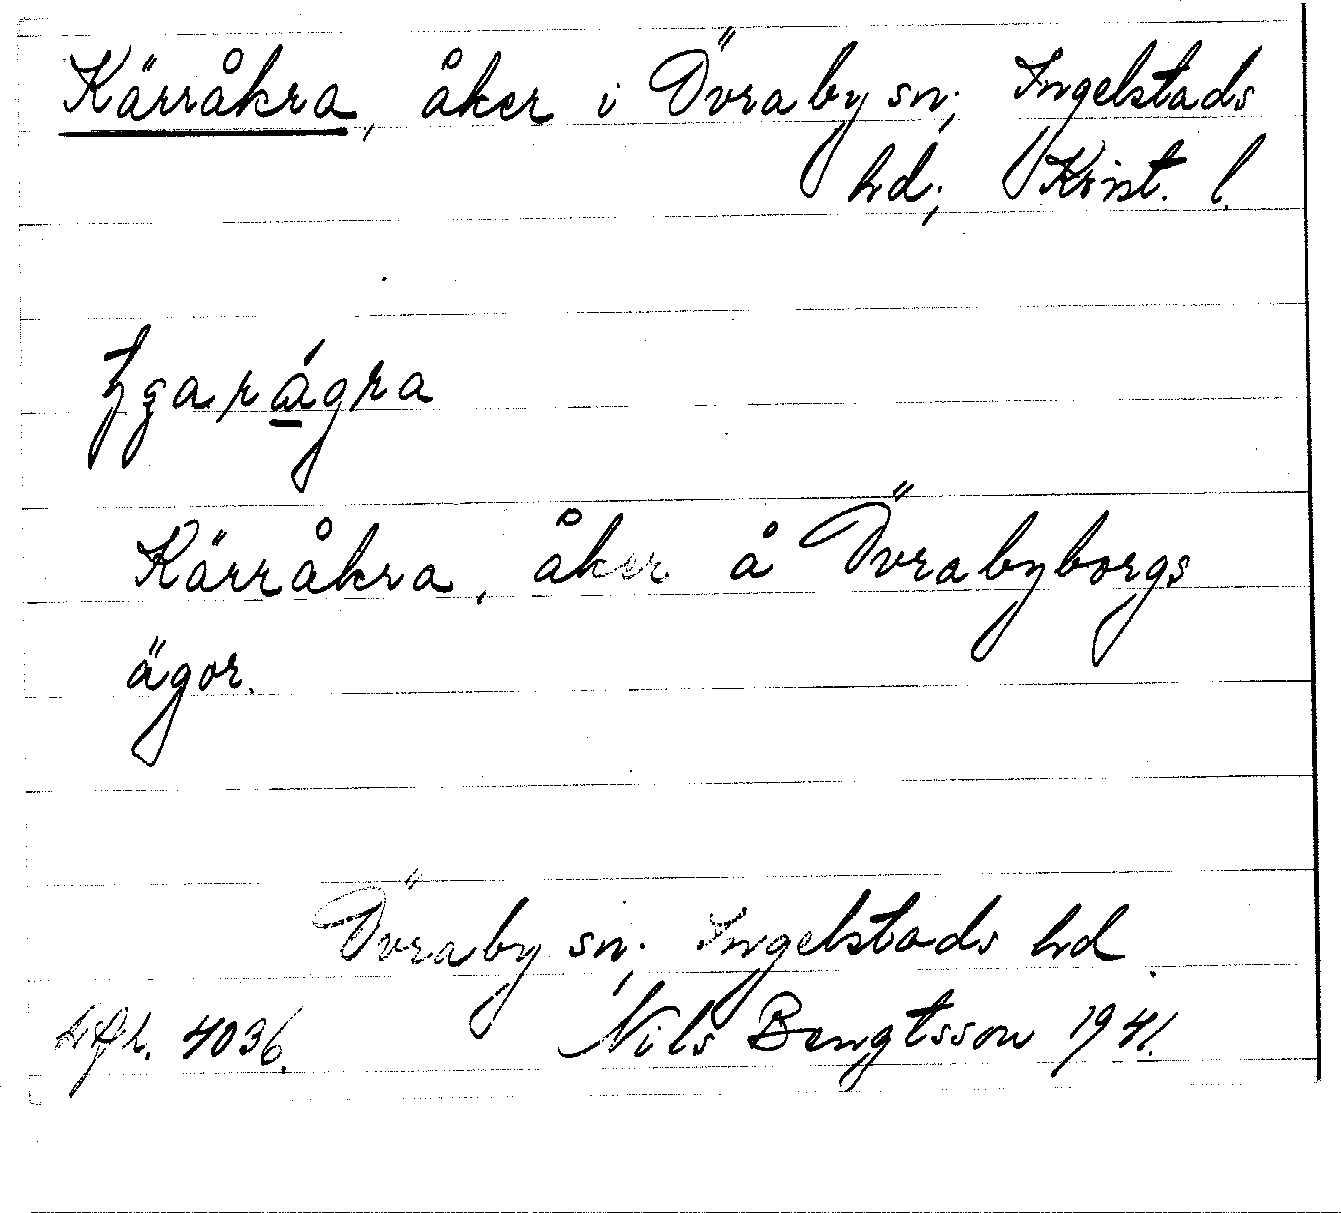 Kärråkra, åker i Övraby sn; Ingelstads
hd; Krist. l.
Kärråkra, åker å Övrabyborgs
ägor.
Övraby sn; Ingelstads hd
4036. Nils Bengtsson 1941.